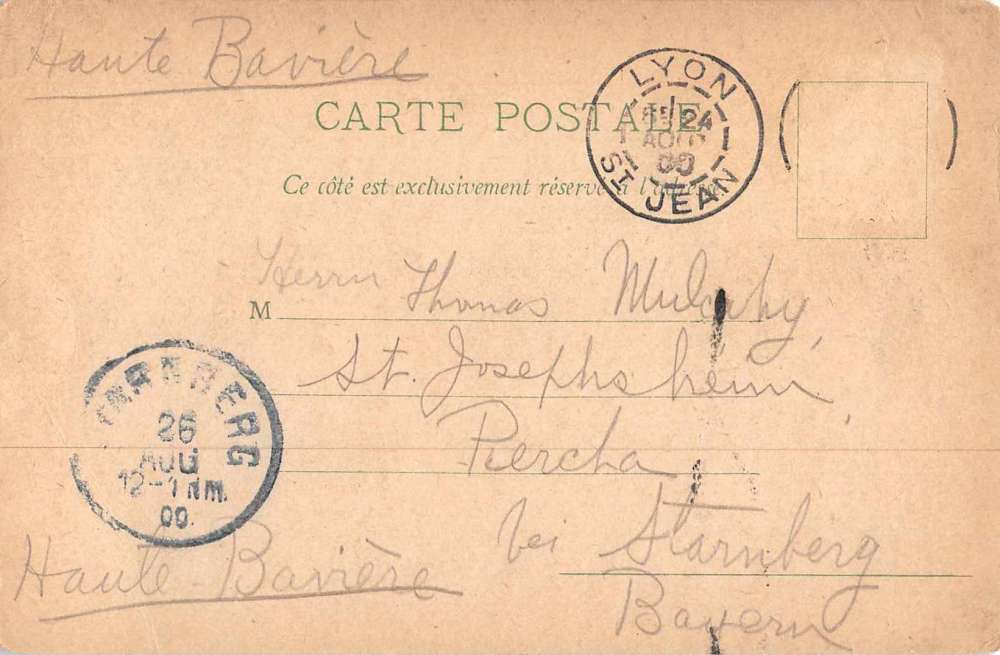 Haute Bavière
CARTE POSTALE
Ce côté est exclusivement réservé à l'adresse
LYON
24
AOUT
00
ST JEAN
Herrn Thomas Mulcahy,
M
St. Josephsheim,
Percha
bei Starnberg
Bayern
STARNBERG
26
AUG
12-1 NM.
00.
Haute-Bavière